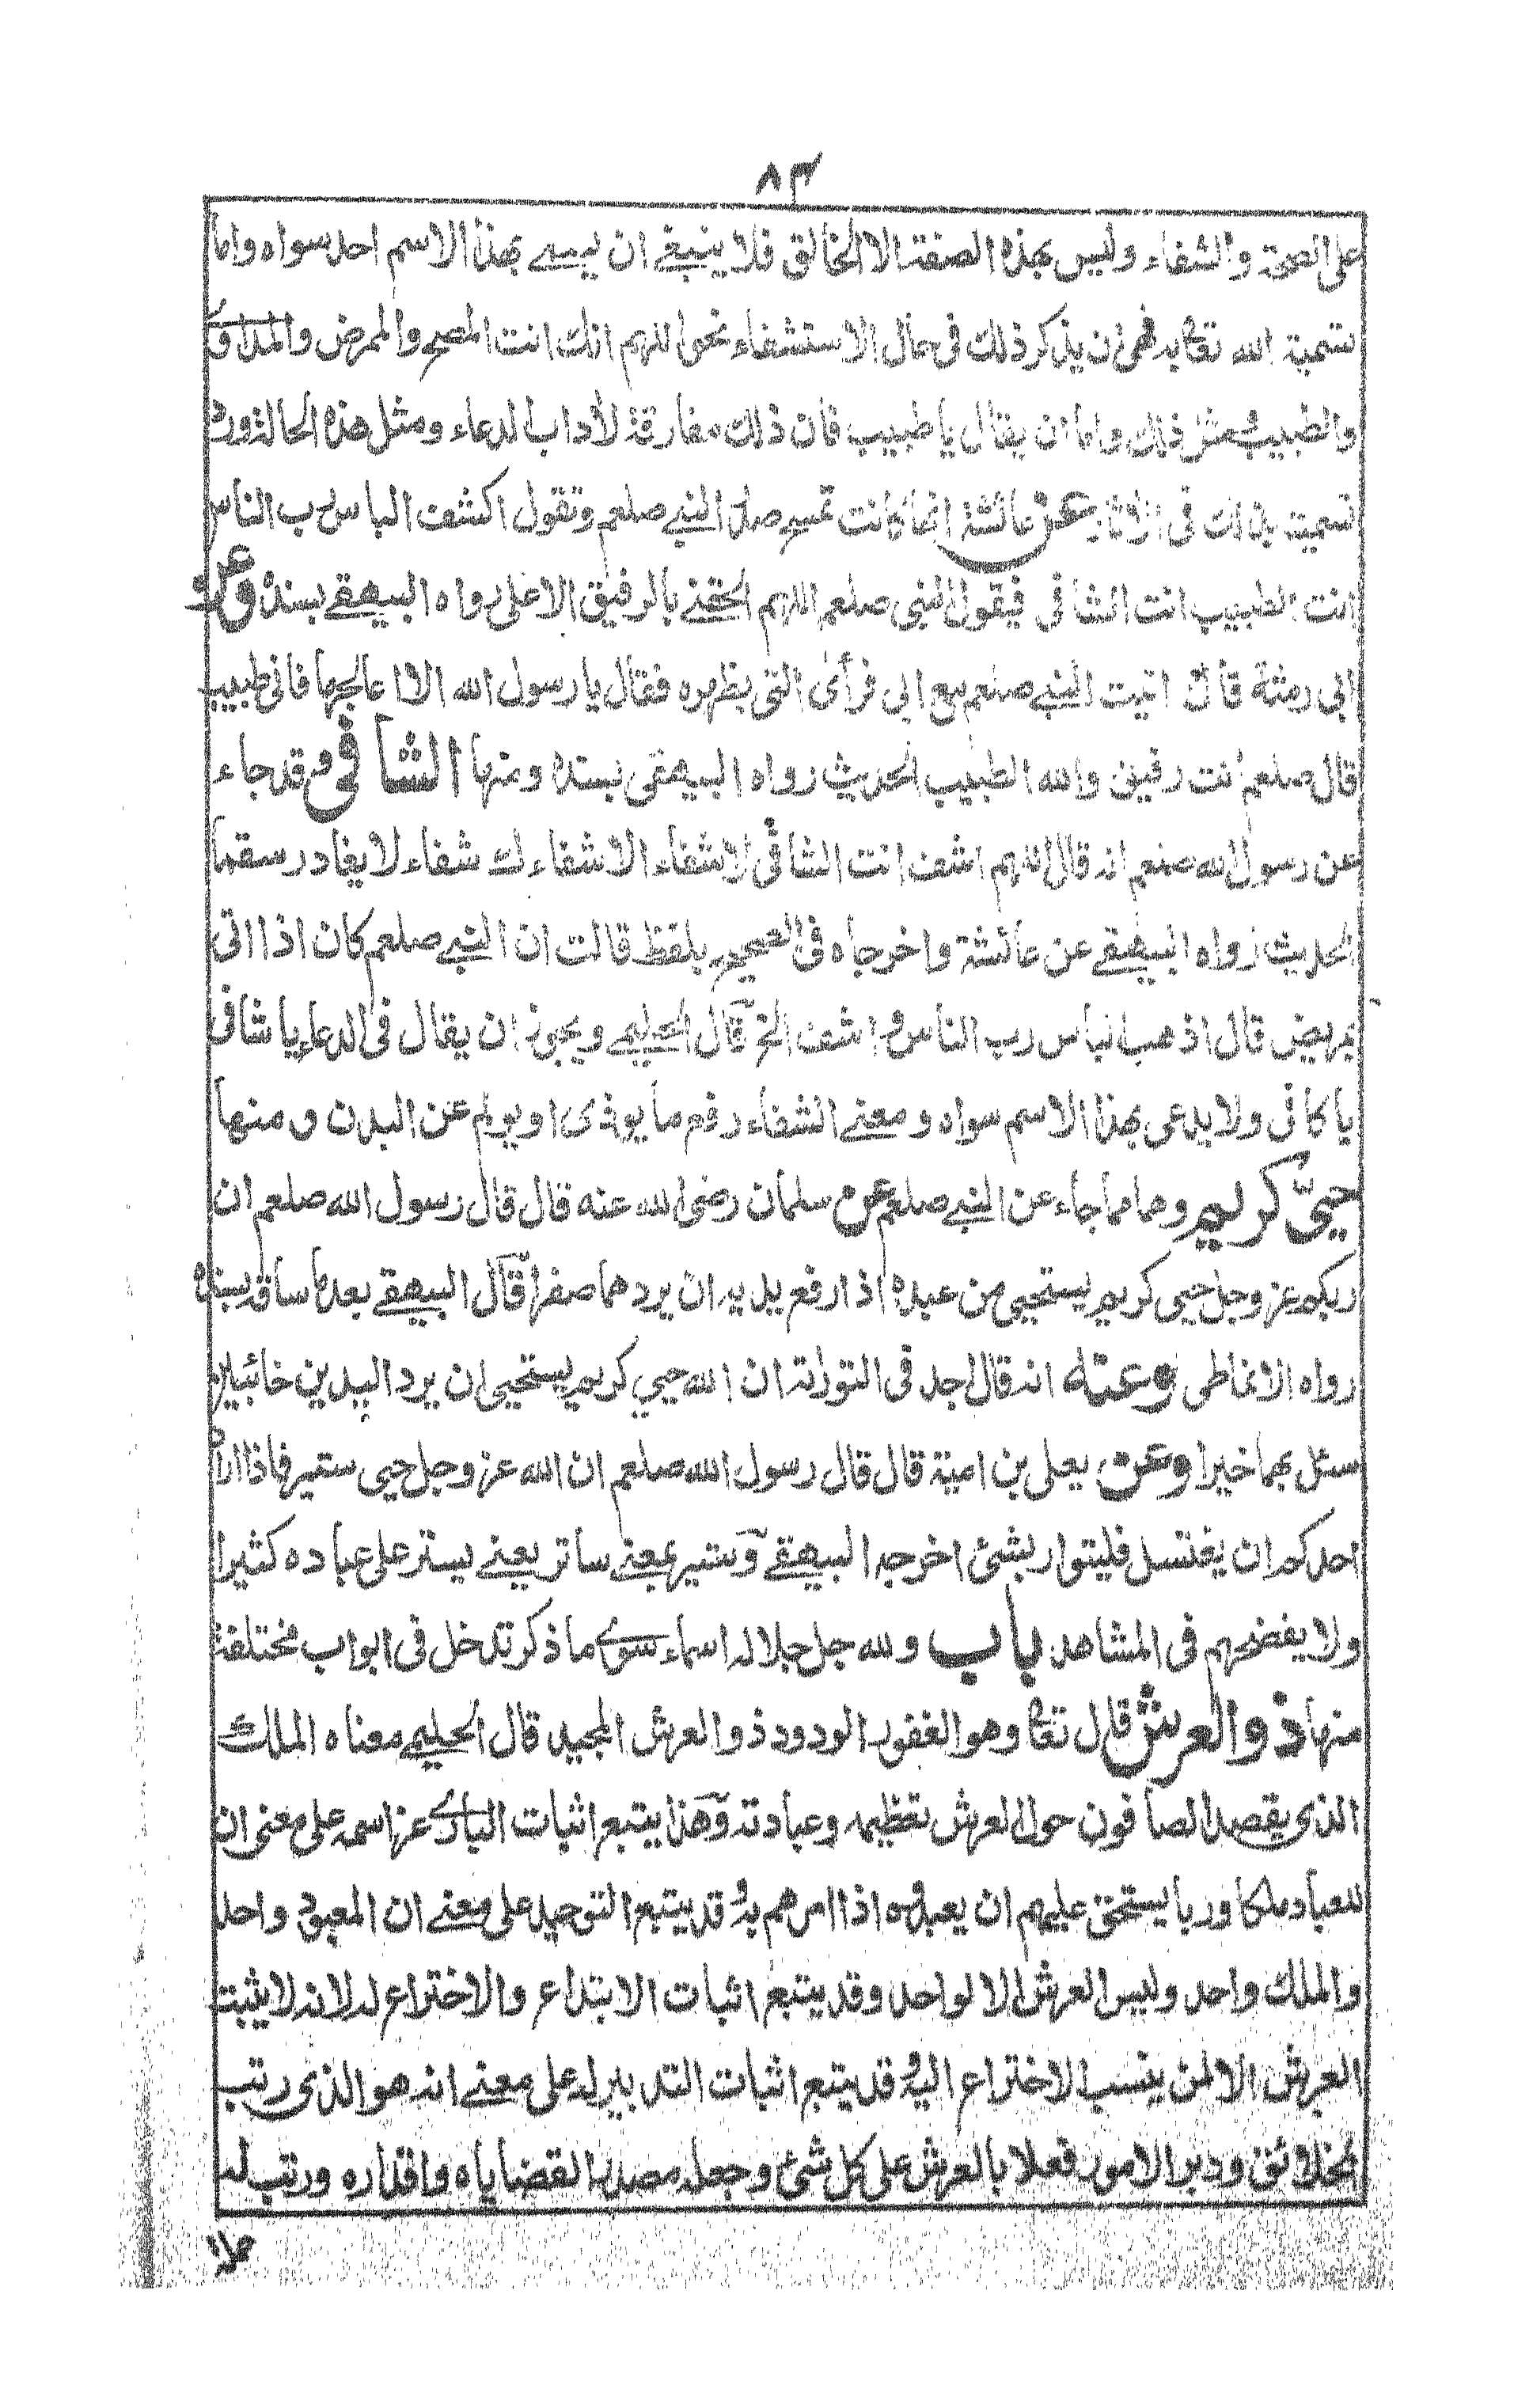 ٨٣
على الصحة والشفاء وليس بهذه الصفة الا الخالق فلا ينبغي ان يسمى بهذا الاسم احد سواه واما
تسمية الله تعا به فهي ان يذكر ذلك في حال الاستشفاء نحو اللهم انك انت المصح والممرض والمداوي
والطبيب ومثل ذلك واما ان يقال يا طبيب فان ذلك مفارقة لأداب الدعاء ومثل هذه الحالة ورد
تسميته بذلك في الاثار عن عائشة انها كانت تمسح صدر النبي صلعم وتقول اكشف الباس رب الناس
انت الطبيب انت الشافي فيقول النبي صلعم اللهم الحقني بالرفيق الاعلى رواه البيهقي بسنده وعن
ابي رمثة قال اتيت النبي صلعم مع ابي فرأى التي بظهره فقال يا رسول الله الا اعالجها فاني طبيب
قال صلعم انت رفيق والله الطبيب الحديث رواه البيهقي بسنده ومنها الشافي وقد جاء
عن رسول الله صلعم انه قال اللهم اشف انت الشافي لا شفاء الا شفاءك شفاء لا يغادر سقما
الحديث رواه البيهقي عن عائشة واخرجاه في الصحيح بلفظ قالت ان النبي صلعم كان اذا اتى
بمريض قال اذهب الباس رب الناس واشف الخ قال الحليمي ويجوز ان يقال في الدعاء يا شافي
يا كافي ولا يدعى بهذا الاسم سواه ومعنى الشفاء رفع ما يوذي او يولم عن البدن ومنها
حيي كريم وهما مما جاء عن النبي صلعم عن سلمان رضي الله عنه قال قال رسول الله صلعم ان
ربكم عز وجل حيي كريم يستحيي من عبده اذا رفع يديه ان يردهما صفرا قال البيهقي بعد ما ساقه بسنده
رواه الانماطي وعنه انه قال اجد في التوراة ان الله حيي كريم يستحيي ان يرد اليدين خائبين
سئل بهما خيرا وعن يعلى بن امية قال قال رسول الله صلعم ان الله عز وجل حيي ستير فاذا اراد
احدكم ان يغتسل فليتوار بشئ اخرجه البيهقي وستير بمعنى ساتر يعني يستر على عباده كثيرا
ولا يفضحهم في المشاهد باب ولله جل جلاله اسماء سوى ما ذكر تدخل في ابواب مختلفة
منها ذو العرش قال تعا وهو الغفور الودود ذو العرش المجيد قال الحليمي معناه الملك
الذي يقصد الصافون حول العرش تعظيمه وعبادته وهذا يتبع اثبات الباري عز اسمه على معنى ان
للعباد ملكا وربا يستحق عليهم ان يعبدوه اذا امرهم به وقد يتبع التوحيد على معنى ان المعبود واحد
والملك واحد وليس العرش الا لواحد وقد يتبع اثبات الابتداع والاختراع له لانه لا يثبت
العرش الا لمن ينسب الاختراع اليه وقد يتبع اثبات التدبير له على معنى انه هو الذي رتب
الخلائق ودبر الامور فعلا بالعرش على كل شئ وجعله مصدرا لقضاياه واقداره ورتب له
حملا